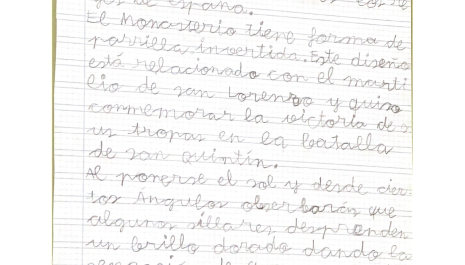 de España.
El Monasterio tiene forma de
parrilla invertida. Este diseño
está relacionado con el marti
lio de san Lorenzo y quiso
conmemorar la victoria de s
us tropas en la batalla
de san quintín.
Al ponerse el sol y desde cier
tos Ángulos observarán que
algunos sillares desprenden
un brillo dorado dando la